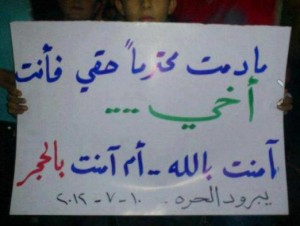 مادمت محترماً حقي فأنت
أخي ...
آمنت بالله - أم آمنت بالحجر
يبرود الحره - ١٠ - ٧ - ٢٠١٢